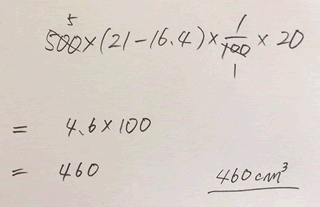 5
500×(21-16.4)×1/100×20
1
= 4.6×100
= 460
460cm³